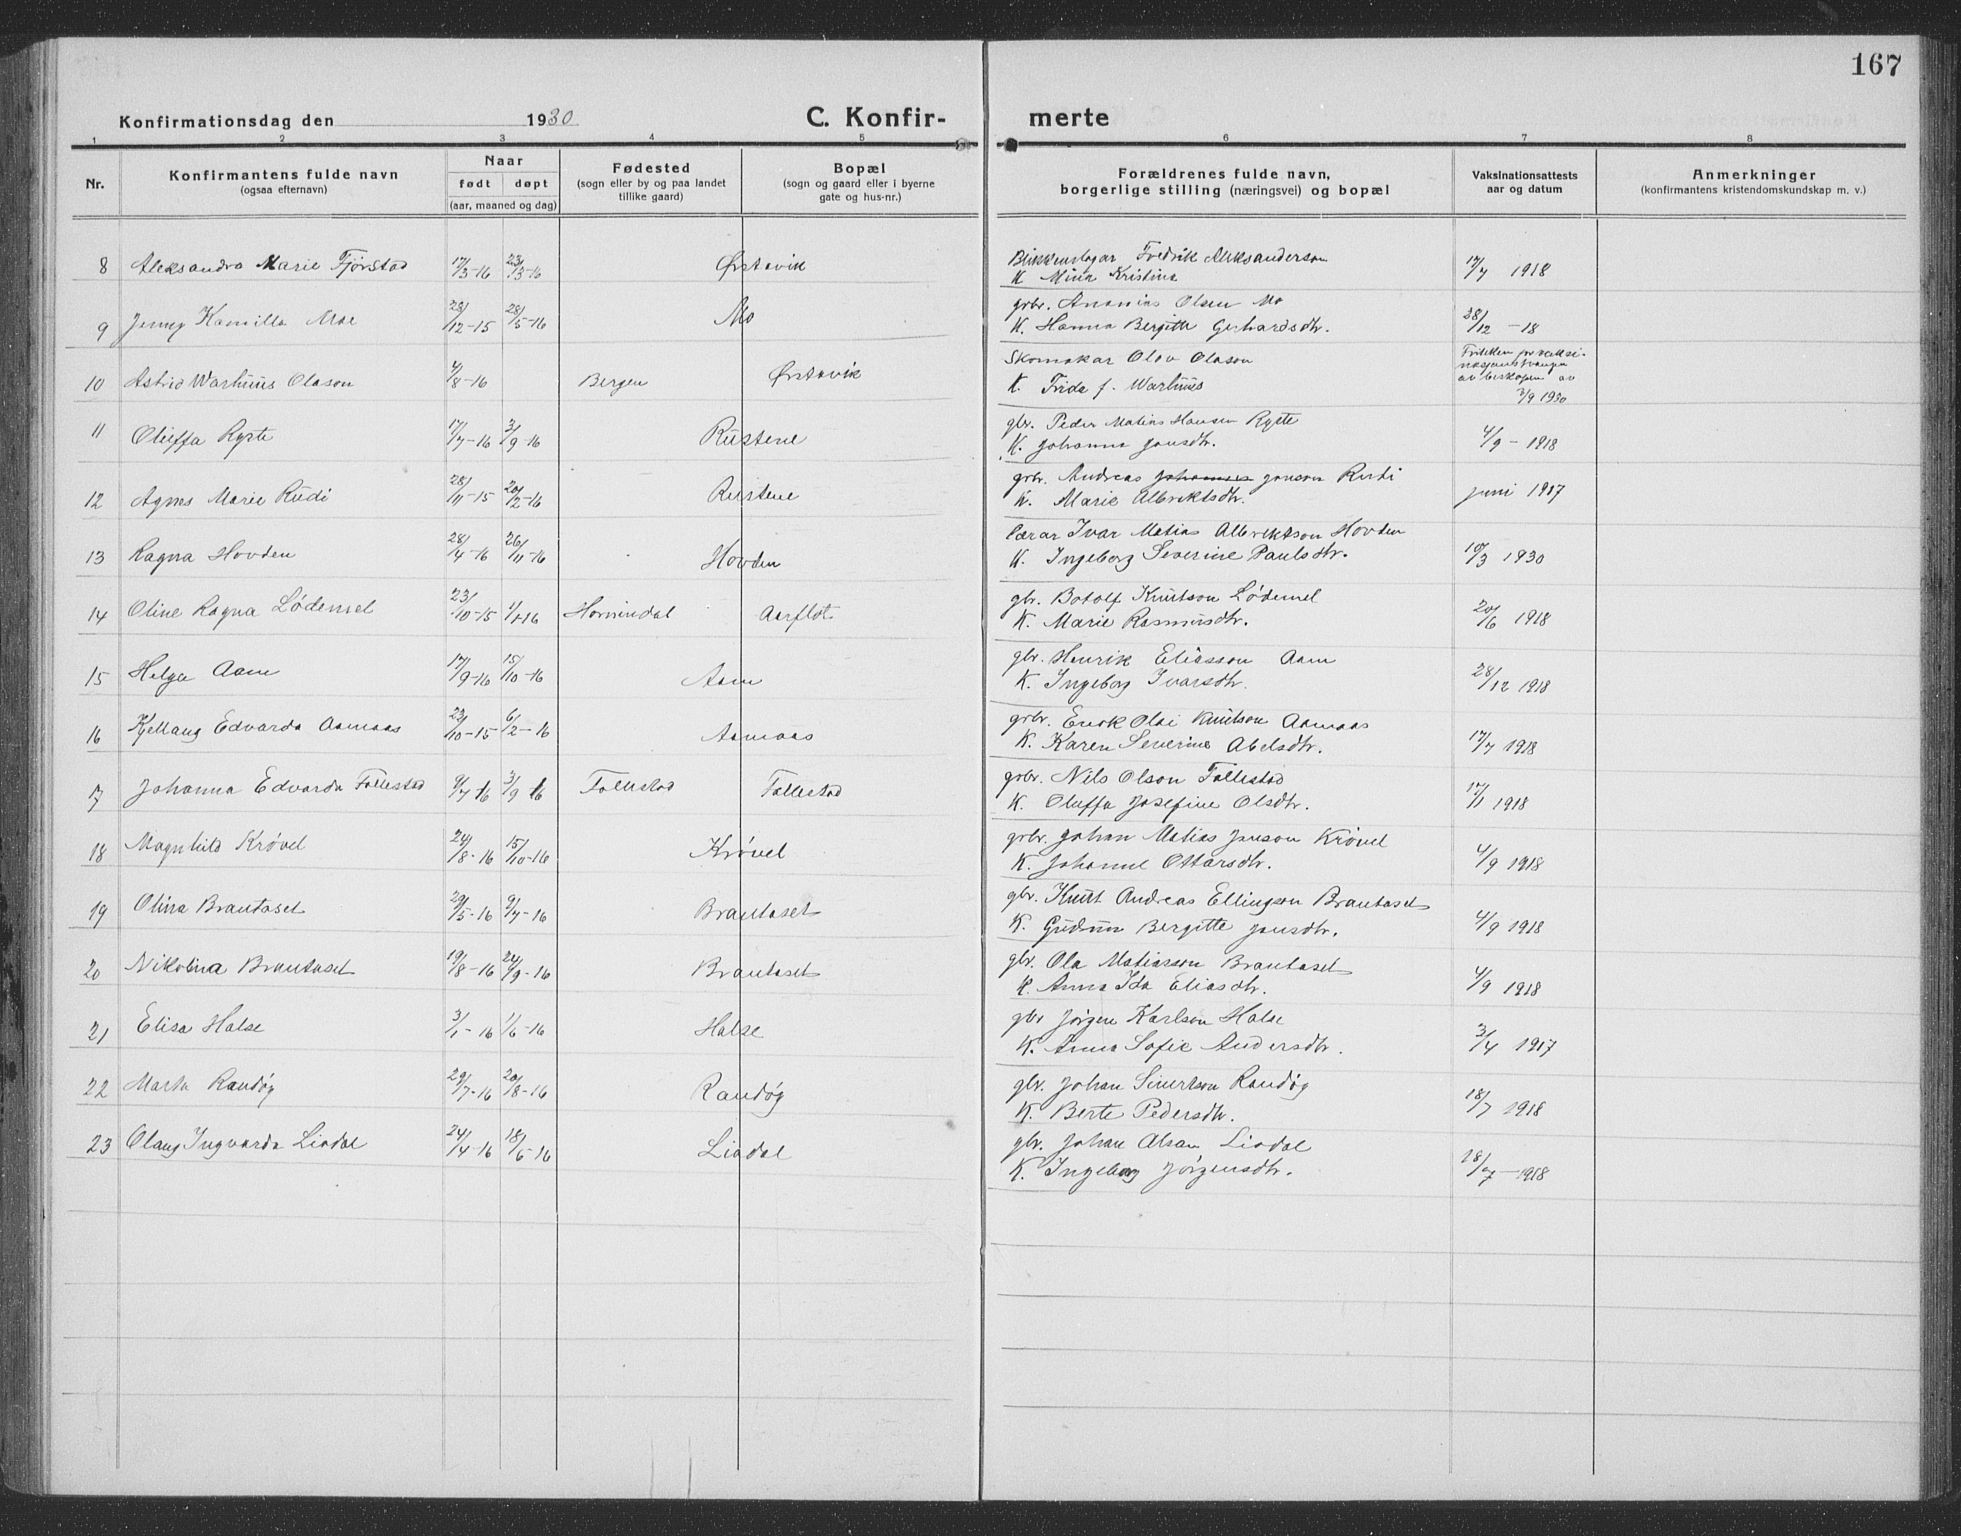 167
Konfirmationsdag den 1930 C. Konfir- merte
1 2 3 4 5 6 7 8
Nr. Konfirmantens fulde navn (ogsaa efternavn) Naar født døpt (aar, maaned og dag) Fødested (sogn eller by og paa landet tillike gaard) Bopæl (sogn og gaard eller i byerne gate og hus-nr.) Forældrenes fulde navn, borgerlige stilling (næringsvei) og bopæl Vaksinationsattests aar og datum Anmerkninger (konfirmantens kristendomskundskap m. v.)
8 Aleksandra Marie Fjørstad 17/3-16 23/3-16 Ørstavik Blikkenslagar Fredrik Aleksanderson 17/7 1918
K. Mina Kristina
9 Jenny Kamilla Moe 28/12-15 28/5-16 Mo grbr. Ananias Olsen Mo 28/12 -18
K. Hanna Bergitte Gerhardsdtr.
10 Astrid Warhuus Olason 4/8-16 Bergen Ørstavik Skomakar Olav Olason
K. Frida f. Warhuus av beskopen av 2/9 1930
11 Oluffa Ryste 17/7-16 3/9-16 Rustene gbr. Peder Matias Hansen Ryste 4/9-1918
K. Johanna Jonsdtr.
12 Agnes Marie Rudi 28/11-15 20/2-16 Rustene grbr. Andreas Johannes Jonson Rudi juni 1917
K. Marie Albriktsdtr.
13 Ragna Hovden 28/4-16 26/11-16 Hovden lærar Ivar Matias Albriktson Hovden 10/3 1930
K. Ingeborg Severine Paulsdtr.
14 Oline Ragna Lødemel 23/10-15 1/1-16 Hornindal Aarflot gbr. Botolf Knutson Lødemel 20/6 1918
K. Marie Rasmusdtr.
15 Helga Aam 17/9-16 15/10-16 Aam gbr. Henrik Eliasson Aam 28/12 1918
K. Ingeborg Ivarsdtr.
16 Kjellaug Edvarda Aamaas 23/10-15 6/2-16 Aamaas grbr. Enok Olai Knutson Aamaas 17/7 1918
K. Karen Severine Abelsdtr.
17 Johanna Edvarda Follestad 9/7-16 3/9 16 Follestad Follestad grbr. Nils Olson Follestad 17/11 1918
K. Oluffa Josefine Olsdtr.
18 Magnhild Krøvel 24/8-16 15/10-16 Krøvel grbr. Johan Matias Jonson Krøvel 4/9 1918
K. Johanne Ottarsdtr.
19 Olina Brautaset 29/5-16 9/7-16 Brautaset gbr. Knut Andreas Ellingson Brautaset 4/9 1918
K. Gudrun Bergitte Jonsdtr.
20 Nikolina Brautaset 19/8-16 24/9-16 Brautaset gbr. Ola Matiasson Brautaset 4/9 1918
K. Anna Ida Eliasdtr.
21 Elisa Halse 3/1-16 1/6-16 Halse gbr Jørgen Karlson Halse 3/4 1917
K. Anna Sofie Andersdtr.
22 Marta Randøy 29/7-16 20/8-16 Randøy gbr. Johan Sivertson Randøy 18/7 1918
K. Berte Pedersdtr.
23 Olaug Ingvarda Liadal 24/4-16 18/6-16 Liadal gbr. Johan Olsen Liadal 18/7-1918
K. Ingeborg Jørgensdtr.